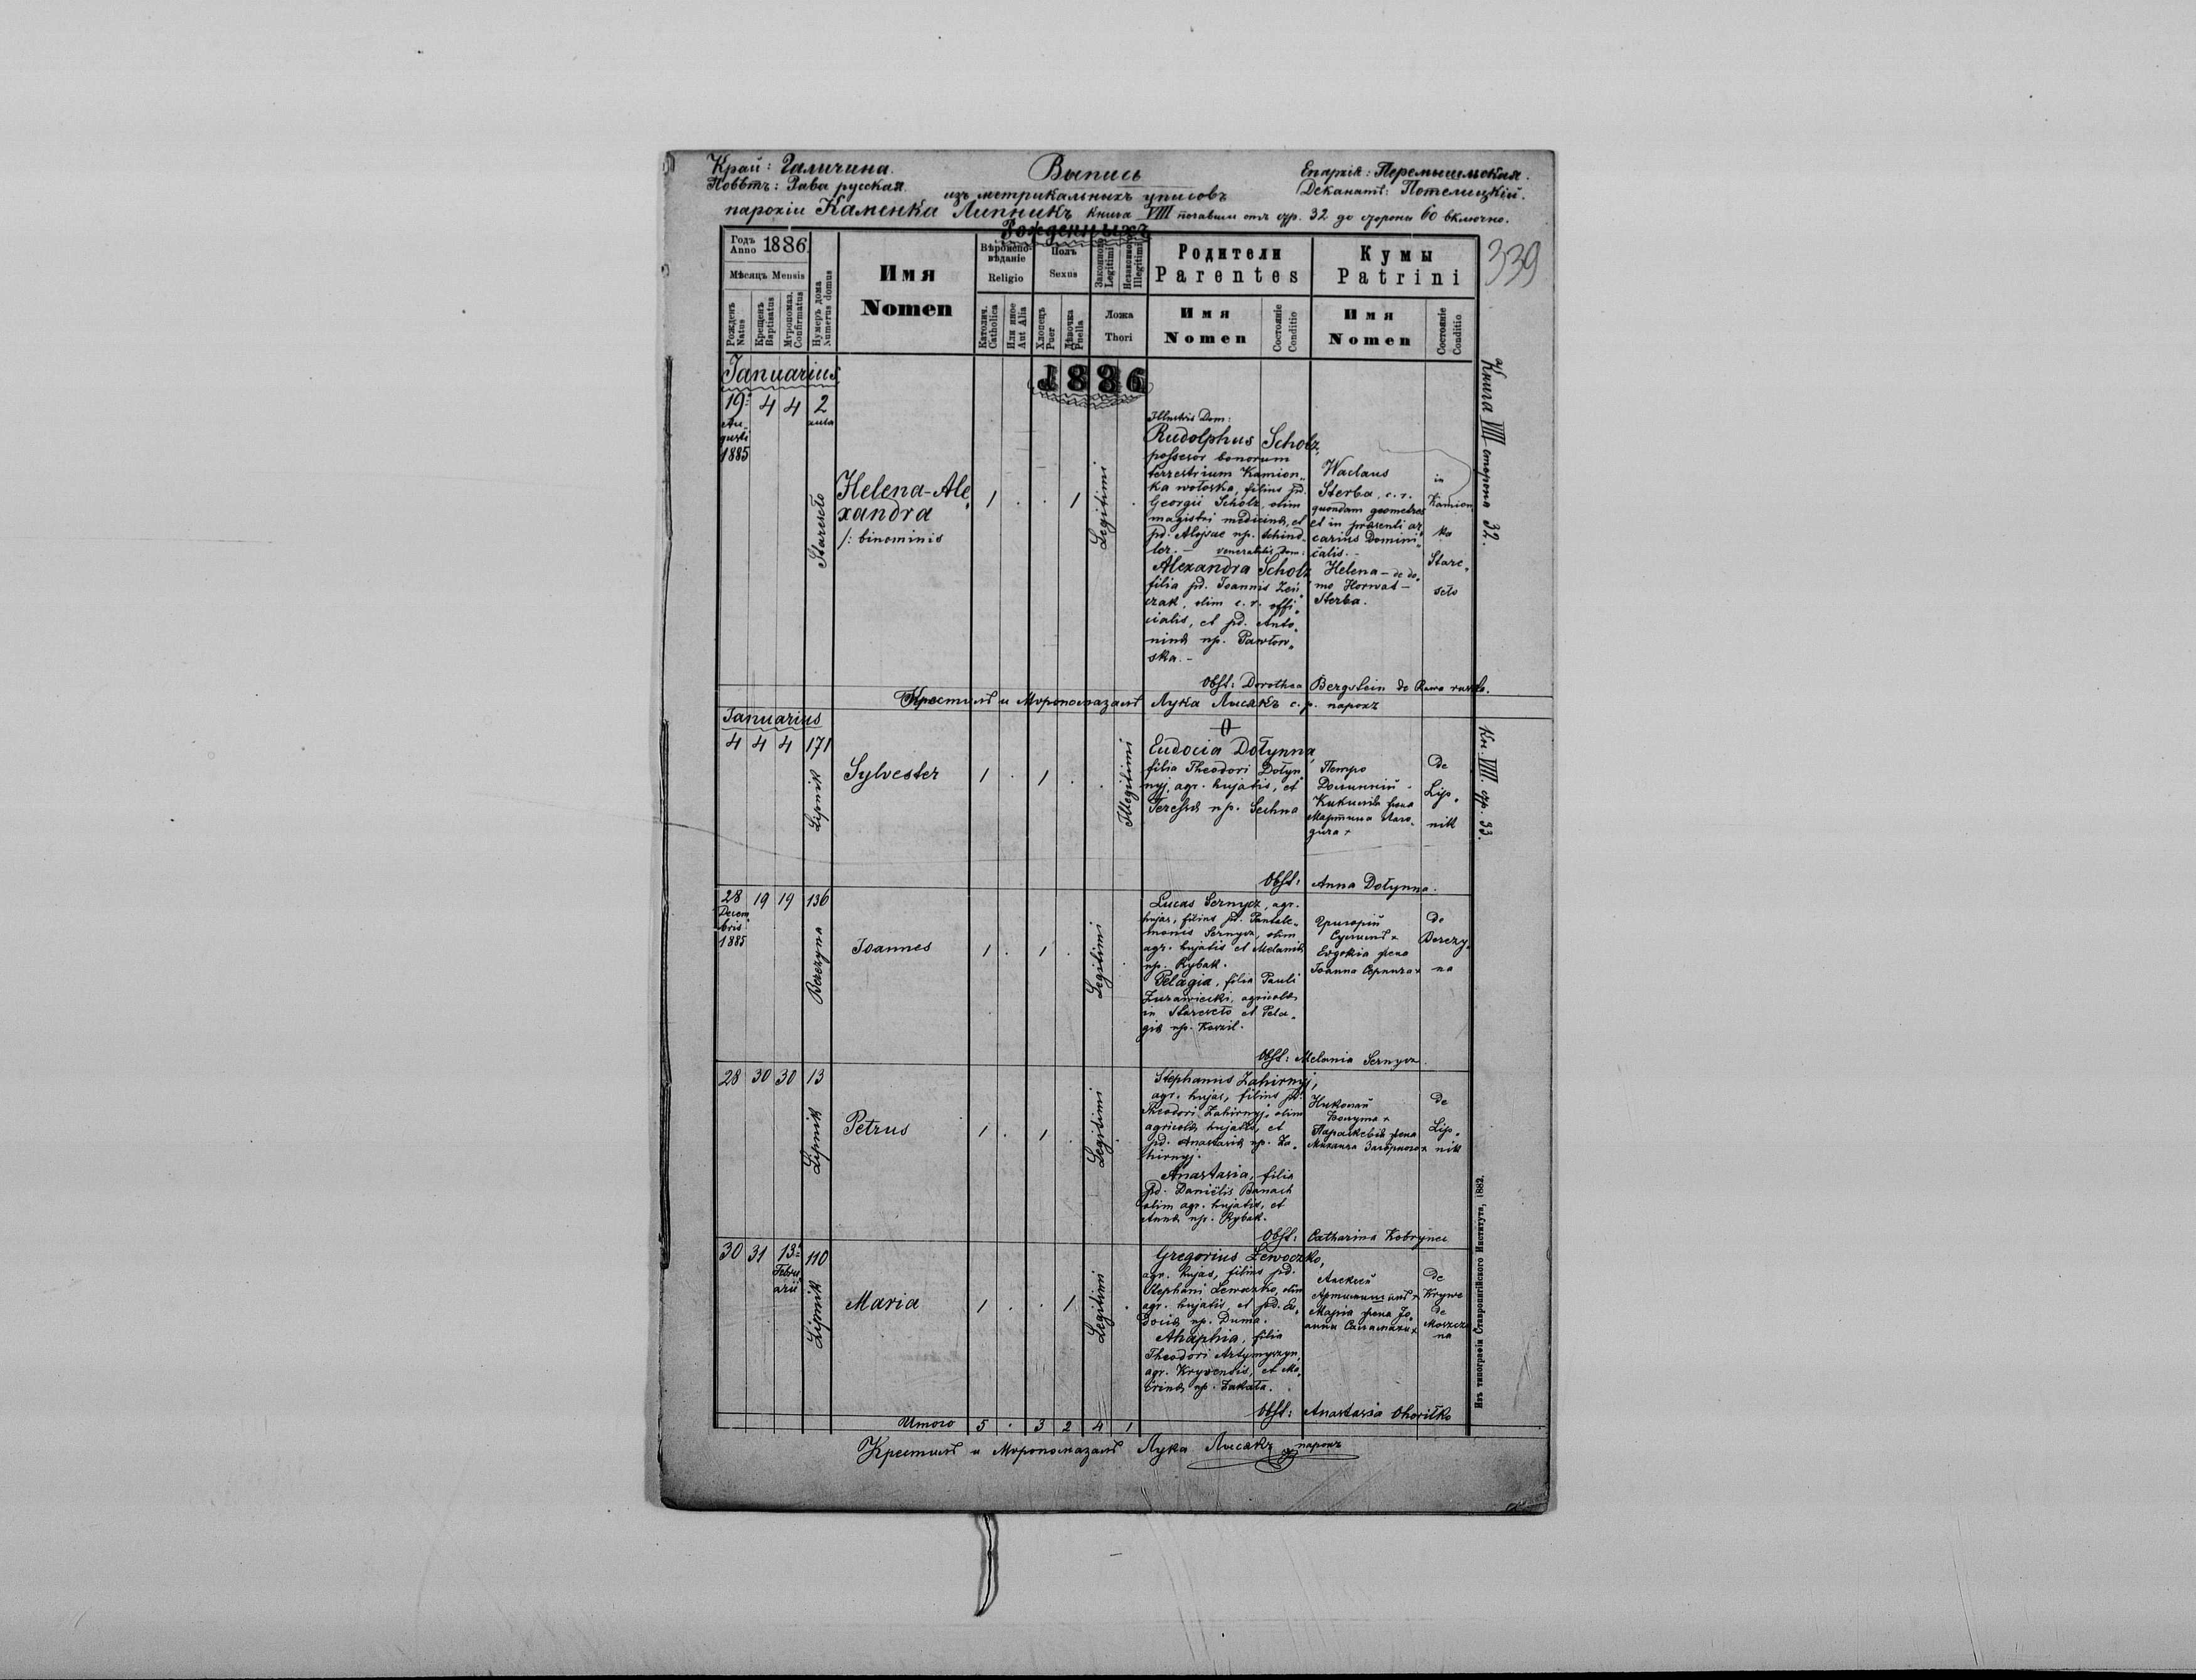 Край: Галичина.
Выпись
Епархія: Перемышльская.
Повѣтъ: Рава русская.
изъ метрикальныхъ уписовъ
Деканатъ: Потелицкій.
парохіи Каменка Липникъ книга VIII почавши отъ стр. 32 до стороны 60 включно.
Рожденныхъ
339
Годъ Anno 1886
Мѣсяцъ Mensis
Рожденъ Natus
Крещенъ Baptisatus
Муропомаз. Confirmatus
Нумеръ дома Numerus domus
Имя
Nomen
Вѣроисповѣданіе
Religio
Католич. Catholica
Или иное Aut Alia
Полъ
Sexus
Хлопецъ Puer
Дѣвочка Puella
Законного Legitimi
Незаконного Illegitimi
Ложа
Thori
Родители
Parentes
Имя
Nomen
Состояніе
Conditio
Кумы
Patrini
Имя
Nomen
Состояніе
Conditio
Книга VIII сторона 32.
Januarius
1886
19 4 4 2
Au-
gusti
1885
aula
Stareseło
Helena-Ale
xandra
/: binominis
1 . . 1
Legitimi
Illustris Dom:
Rudolphus Scholz,
possesor bonorum
terrestrium Kamion-
ka wołoska, filius pd.
Georgii Scholz, olim
magistri medicinæ, et
pd. Aloysae np. Schind-
ler. - venerabilis Dom:
Alexandra Scholz
filia pd. Joannis Zeń
czak, olim c. r. offi-
cialis, et pd. Anto-
ninæ np. Pawłow-
ska. -
Waclaus
Sterba, c. r.
quondam geometres
et in præsenti ar
carius Domini
calis. -
Helena - de do-
mo Horwat -
Sterba.
in
Kamion
ka
Stare-
seło
Obst: Dorothea Bergstein de Rawa ruska.
Крестилъ и Муропомазалъ Лука Лисякъ с. р. парохъ
Januarius
Кн. VIII. стр. 33.
4 4 4 171
Lipnik
Sylvester
1 . 1 . .
Illegitimi
Eudocia Dołynna,
filia Theodori Dołyn
nyj, agr. hujatis, et
Teressæ np. Sechna
Петро
Долинный
жена
Мартина
De
Lip-
nik
Obst: Anna Dołynna.
28 19 19 136
Decem
bris
1885
Berezyna
Joannes
1 . 1 .
Legitimi
Lucas Sernycz, agr.
hujas, filius pd. Pantale-
monis Sernycz, olim
agr. hujatis et Melaniæ
np. Rybak.
Pelagia, filia Pauli
Zurawiecki, agricolæ
in Staresoło et Pela-
giæ np. Kozil.
Григорій
Евдокія жена
Іоанна Сернича +
De
Berezy-
na
Obst: Melania Sernycz.
28 30 30 13
Lipnik
Petrus
1 . 1 .
Legitimi
Stephanus Zahirnyj,
agr. hujas, filius pd.
Theodori Zahirnyj, olim
agricolæ hujatis, et
pd. Anastasiæ np. Za-
hirnyj.
Anastasia, filia
pd. Daniëlis Banach
olim agr. hujatis, et
Annæ np. Rybak.
Николай
Параскевія жена
Михаила
De
Lip-
nik
Obst: Catharina Kobrynec
30 31 13 110
Febru
arii
Lipnik
Maria
1 . . 1
Legitimi
Gregorius Lewoczko,
agr. hujas, filius pd.
Stephani Lewoczko, olim
agr. hujatis, et pd. Eu-
dociæ np. Duma.
Ahaphia, filia
Theodori Artymyszyn,
agr. Kryvensis, et Ma-
trinæ np. Zakała.
Алексей
Артимишинъ +
Марія жена Іо-
анна Саламахи +
De
Krywe
de
Moszcza
na
Obst: Anastasia Ohoriłko
Итого 5 . 3 2 4 1
Крестилъ и Муропомазалъ Лука Лисякъ парохъ
Изъ типографіи Ставропигійского Института, 1882.